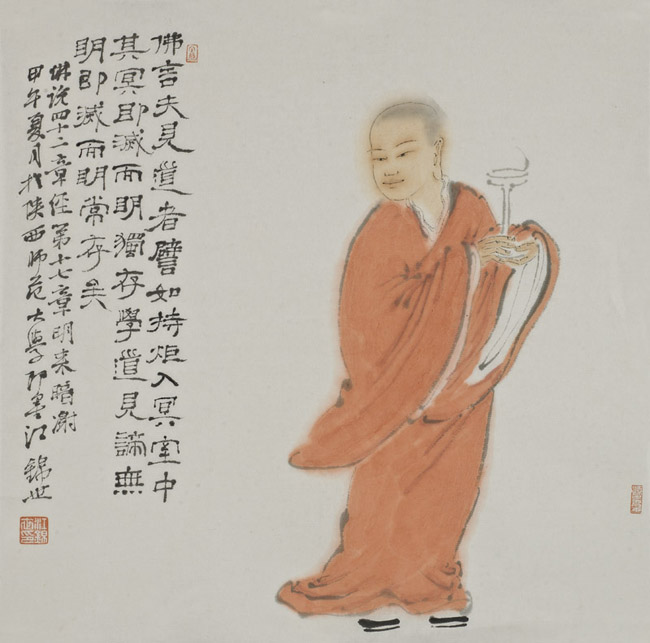 佛言夫見道者譬如持炬入冥室中
其冥即滅而明獨存學道見諦無
明即滅而明常存矣
佛説四十二章經第十七章明来暗謝
甲午夏月於陝西師范大學江錦世